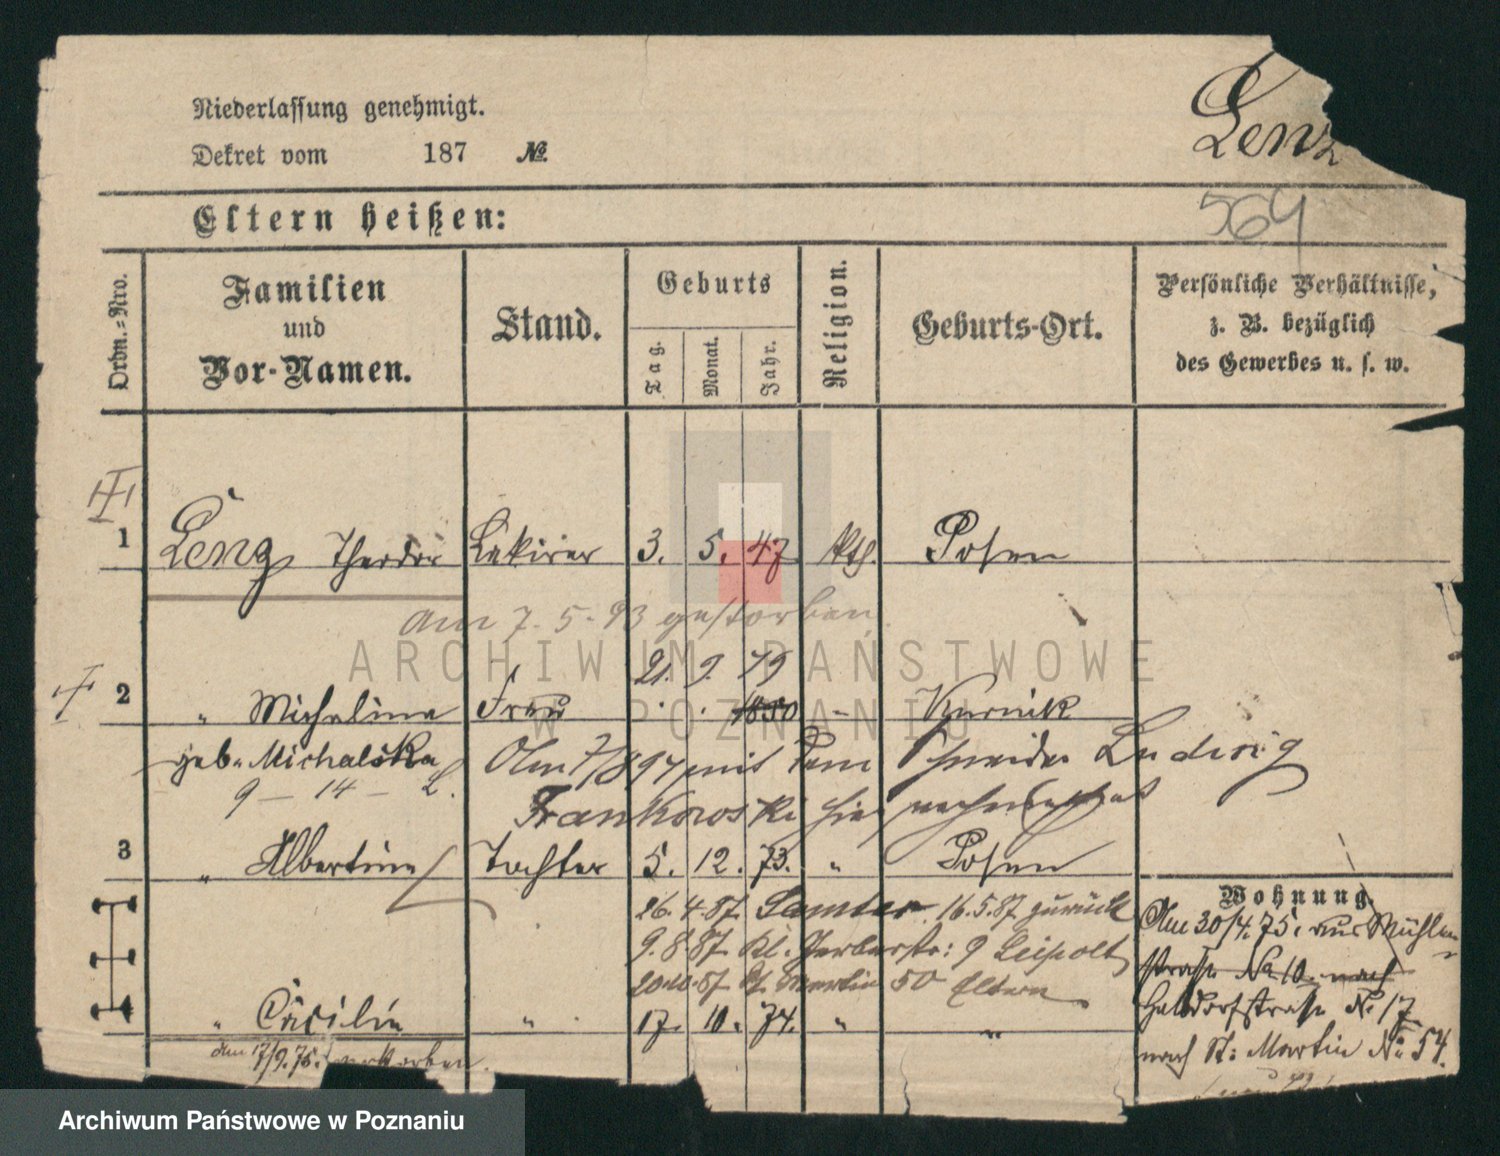 Niederlassung genehmigt.
Lenz
Dekret vom 187 No.
564
Eltern heißen:
Ordn.=Nro.
Familien und Vor-Namen.
Stand.
Geburts
Tag.
Monat.
Jahr.
Religion.
Geburts-Ort.
Persönliche Verhältnisse,
z. B. bezüglich
des Gewerbes u. s. w.
1 Lenz Theodor Lakirer 3. 5. 47 kth. Posen
am 7.5.93 gestorben.
ARCHIWUM PAŃSTWOWE
W POZNANIU
21. 9. 79
2 " Michalina Frau 1850 - Kurnik
geb. Michalska
Am 7/8 94 mit dem Schneider Ludwig
9 - 14 - L.
Frankowski hier
3 " Albertine Tochter 5. 12. 73. " Posen
Wohnung.
26.4.87. Samter. 16.5.87 zurück
Am 30/4.75. aus Mühlen-
9.8.87. Kl. Gerberstr: 9
straße No 10. nach
20.10.87 St. Martin 50 Eltern
Halbdorfstraße No. 17
" Cäcilie " 17. 10. 74. " "
nach St: Martin No: 54.
am 17/9.75. verstorben.
Archiwum Państwowe w Poznaniu